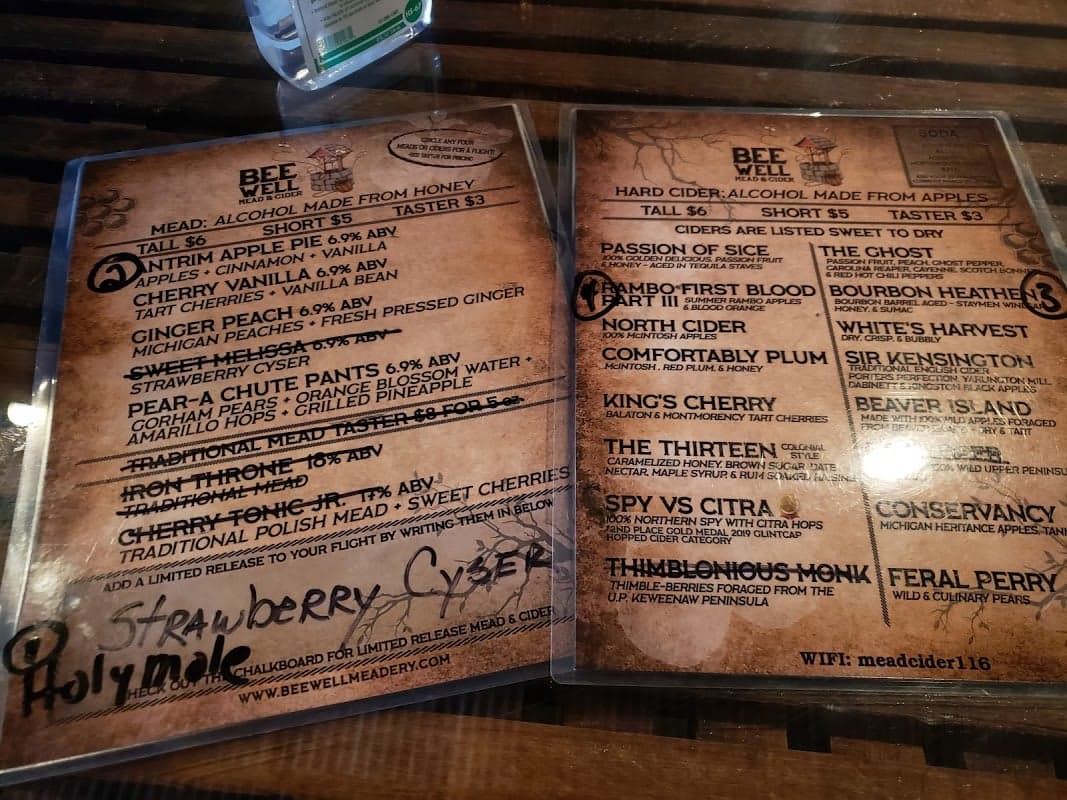 CIRCLE ANY FOUR
MEADS OR CIDERS FOR A FLIGHT!
BEE
WELL
MEAD & CIDER
MEAD: ALCOHOL MADE FROM HONEY
TALL $6 SHORT $5 TASTER $3
2
ANTRIM APPLE PIE 6.9% ABV
APPLES + CINNAMON + VANILLA
CHERRY VANILLA 6.9% ABV
TART CHERRIES + VANILLA BEAN
GINGER PEACH 6.9% ABV
MICHIGAN PEACHES + FRESH PRESSED GINGER
SWEET MELISSA 6.9% ABV
STRAWBERRY CYSER
PEAR-A CHUTE PANTS 6.9% ABV
GORHAM PEARS + ORANGE BLOSSOM WATER +
AMARILLO HOPS + GRILLED PINEAPPLE
TRADITIONAL MEAD TASTER $8 FOR 5 oz.
IRON THRONE 18% ABV
TRADITIONAL MEAD
CHERRY TONIC JR. 17% ABV
TRADITIONAL POLISH MEAD + SWEET CHERRIES
ADD A LIMITED RELEASE TO YOUR FLIGHT BY WRITING THEM IN BELOW
Strawberry Cyser
1
Holy mole
CHECK OUT THE CHALKBOARD FOR LIMITED RELEASE MEAD & CIDER
WWW.BEEWELLMEADERY.COM
SODA
BEE
WELL
MEAD & CIDER
HARD CIDER: ALCOHOL MADE FROM APPLES
TALL $6 SHORT $5 TASTER $3
CIDERS ARE LISTED SWEET TO DRY
PASSION OF SICE
100% GOLDEN DELICIOUS, PASSION FRUIT
& HONEY - AGED IN TEQUILA STAVES
4
RAMBO FIRST BLOOD
PART III SUMMER RAMBO APPLES
& BLOOD ORANGE
NORTH CIDER
100% McINTOSH APPLES
COMFORTABLY PLUM
McINTOSH, RED PLUM, & HONEY
KING'S CHERRY
BALATON & MONTMORENCY TART CHERRIES
THE THIRTEEN COLONIAL
STYLE
CARAMELIZED HONEY, BROWN SUGAR, DATE
NECTAR, MAPLE SYRUP, & RUM SOAKED RAISINS
SPY VS CITRA
100% NORTHERN SPY WITH CITRA HOPS
2ND PLACE GOLD MEDAL 2019 GLINTCAP
HOPPED CIDER CATEGORY
THIMBLONIOUS MONK
THIMBLE-BERRIES FORAGED FROM THE
U.P. KEWEENAW PENINSULA
THE GHOST
PASSION FRUIT, PEACH, GHOST PEPPER,
CAROLINA REAPER, CAYENNE, SCOTCH BONNET
& RED HOT CHILI PEPPERS
BOURBON HEATHEN
3
BOURBON BARREL AGED - STAYMEN WINESAP,
HONEY, & SUMAC
WHITE'S HARVEST
DRY, CRISP, & BUBBLY
SIR KENSINGTON
TRADITIONAL ENGLISH CIDER
PORTERS PERFECTION, YARLINGTON MILL,
DABINETT & KINGSTON BLACK APPLES
BEAVER ISLAND
MADE WITH 100% WILD APPLES FORAGED
FROM DRY & TART
WILD UPPER PENINSU
CONSERVANCY
MICHIGAN HERITANCE APPLES, TANN
FERAL PERRY
WILD & CULINARY PEARS
WIFI: meadcider116